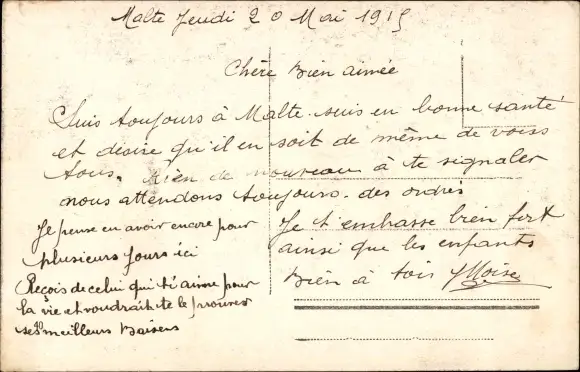 Malte Jeudi 20 Mai 1915
Chère Bien aimée
Suis toujours à Malte. suis en bonne santé
et désire qu'il en soit de même de vous
tous. Rien de nouveau à te signaler
nous attendons toujours. des ordres
Je pense en avoir encore pour
plusieurs jours ici
Reçois de celui qui t'aime pour
la vie et voudrait te le prouver
ses meilleurs Baisers
Je t'embrasse bien fort
ainsi que les enfants
Bien à toi Moïse